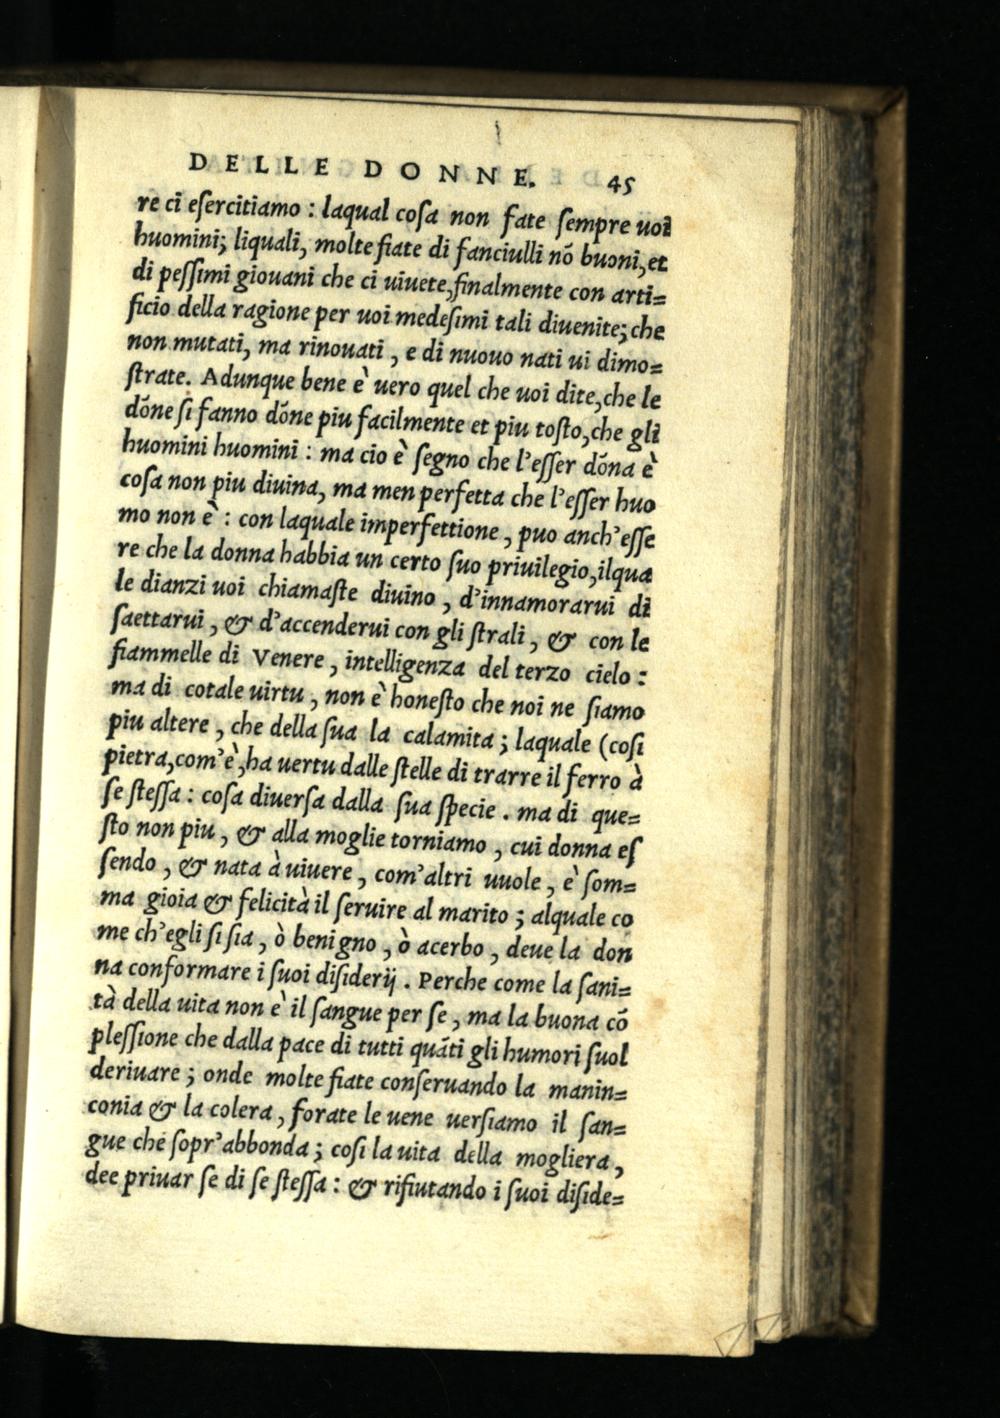 DELLE DONNE. 45
re ci eſercitiamo : laqual coſa non fate ſempre uoi
huomini; liquali, molte fiate di fanciulli nõ buoni, et
di peſſimi giouani che ci uiuete, finalmente con arti=
ficio della ragione per uoi medeſimi tali diuenite; che
non mutati, ma rinouati, e di nuouo nati ui dimo=
ſtrate. Adunque bene è uero quel che uoi dite, che le
dõne ſi fanno dõne piu facilmente et piu toſto, che gli
huomini huomini : ma cio è ſegno che l'eſſer dõna è
coſa non piu diuina, ma men perfetta che l'eſſer huo
mo non è : con laquale imperfettione, puo anch'eſſe
re che la donna habbia un certo ſuo priuilegio, ilqua
le dianzi uoi chiamaſte diuino, d'innamorarui di
ſaettarui, & d'accenderui con gli ſtrali, & con le
fiammelle di Venere, intelligenza del terzo cielo :
ma di cotale uirtu, non è honeſto che noi ne ſiamo
piu altere, che della ſua la calamita; laquale (coſi
pietra, com'è, ha uertu dalle ſtelle di trarre il ferro à
ſe ſteſſa : coſa diuerſa dalla ſua ſpecie. ma di que=
ſto non piu, & alla moglie torniamo, cui donna eſ
ſendo, & nata à uiuere, com'altri uuole, è ſom=
ma gioia & felicità il ſeruire al marito; alquale co
me ch'egli ſi ſia, ò benigno, ò acerbo, deue la don
na conformare i ſuoi diſiderij. Perche come la ſani=
tà della uita non è il ſangue per ſe, ma la buona cõ
pleſſione che dalla pace di tutti quãti gli humori ſuol
deriuare; onde molte fiate conſeruando la manin=
conia & la colera, forate le uene uerſiamo il ſan=
gue che ſopr'abbonda; coſi la uita della mogliera,
dee priuar ſe di ſe ſteſſa : & rifiutando i ſuoi diſide=